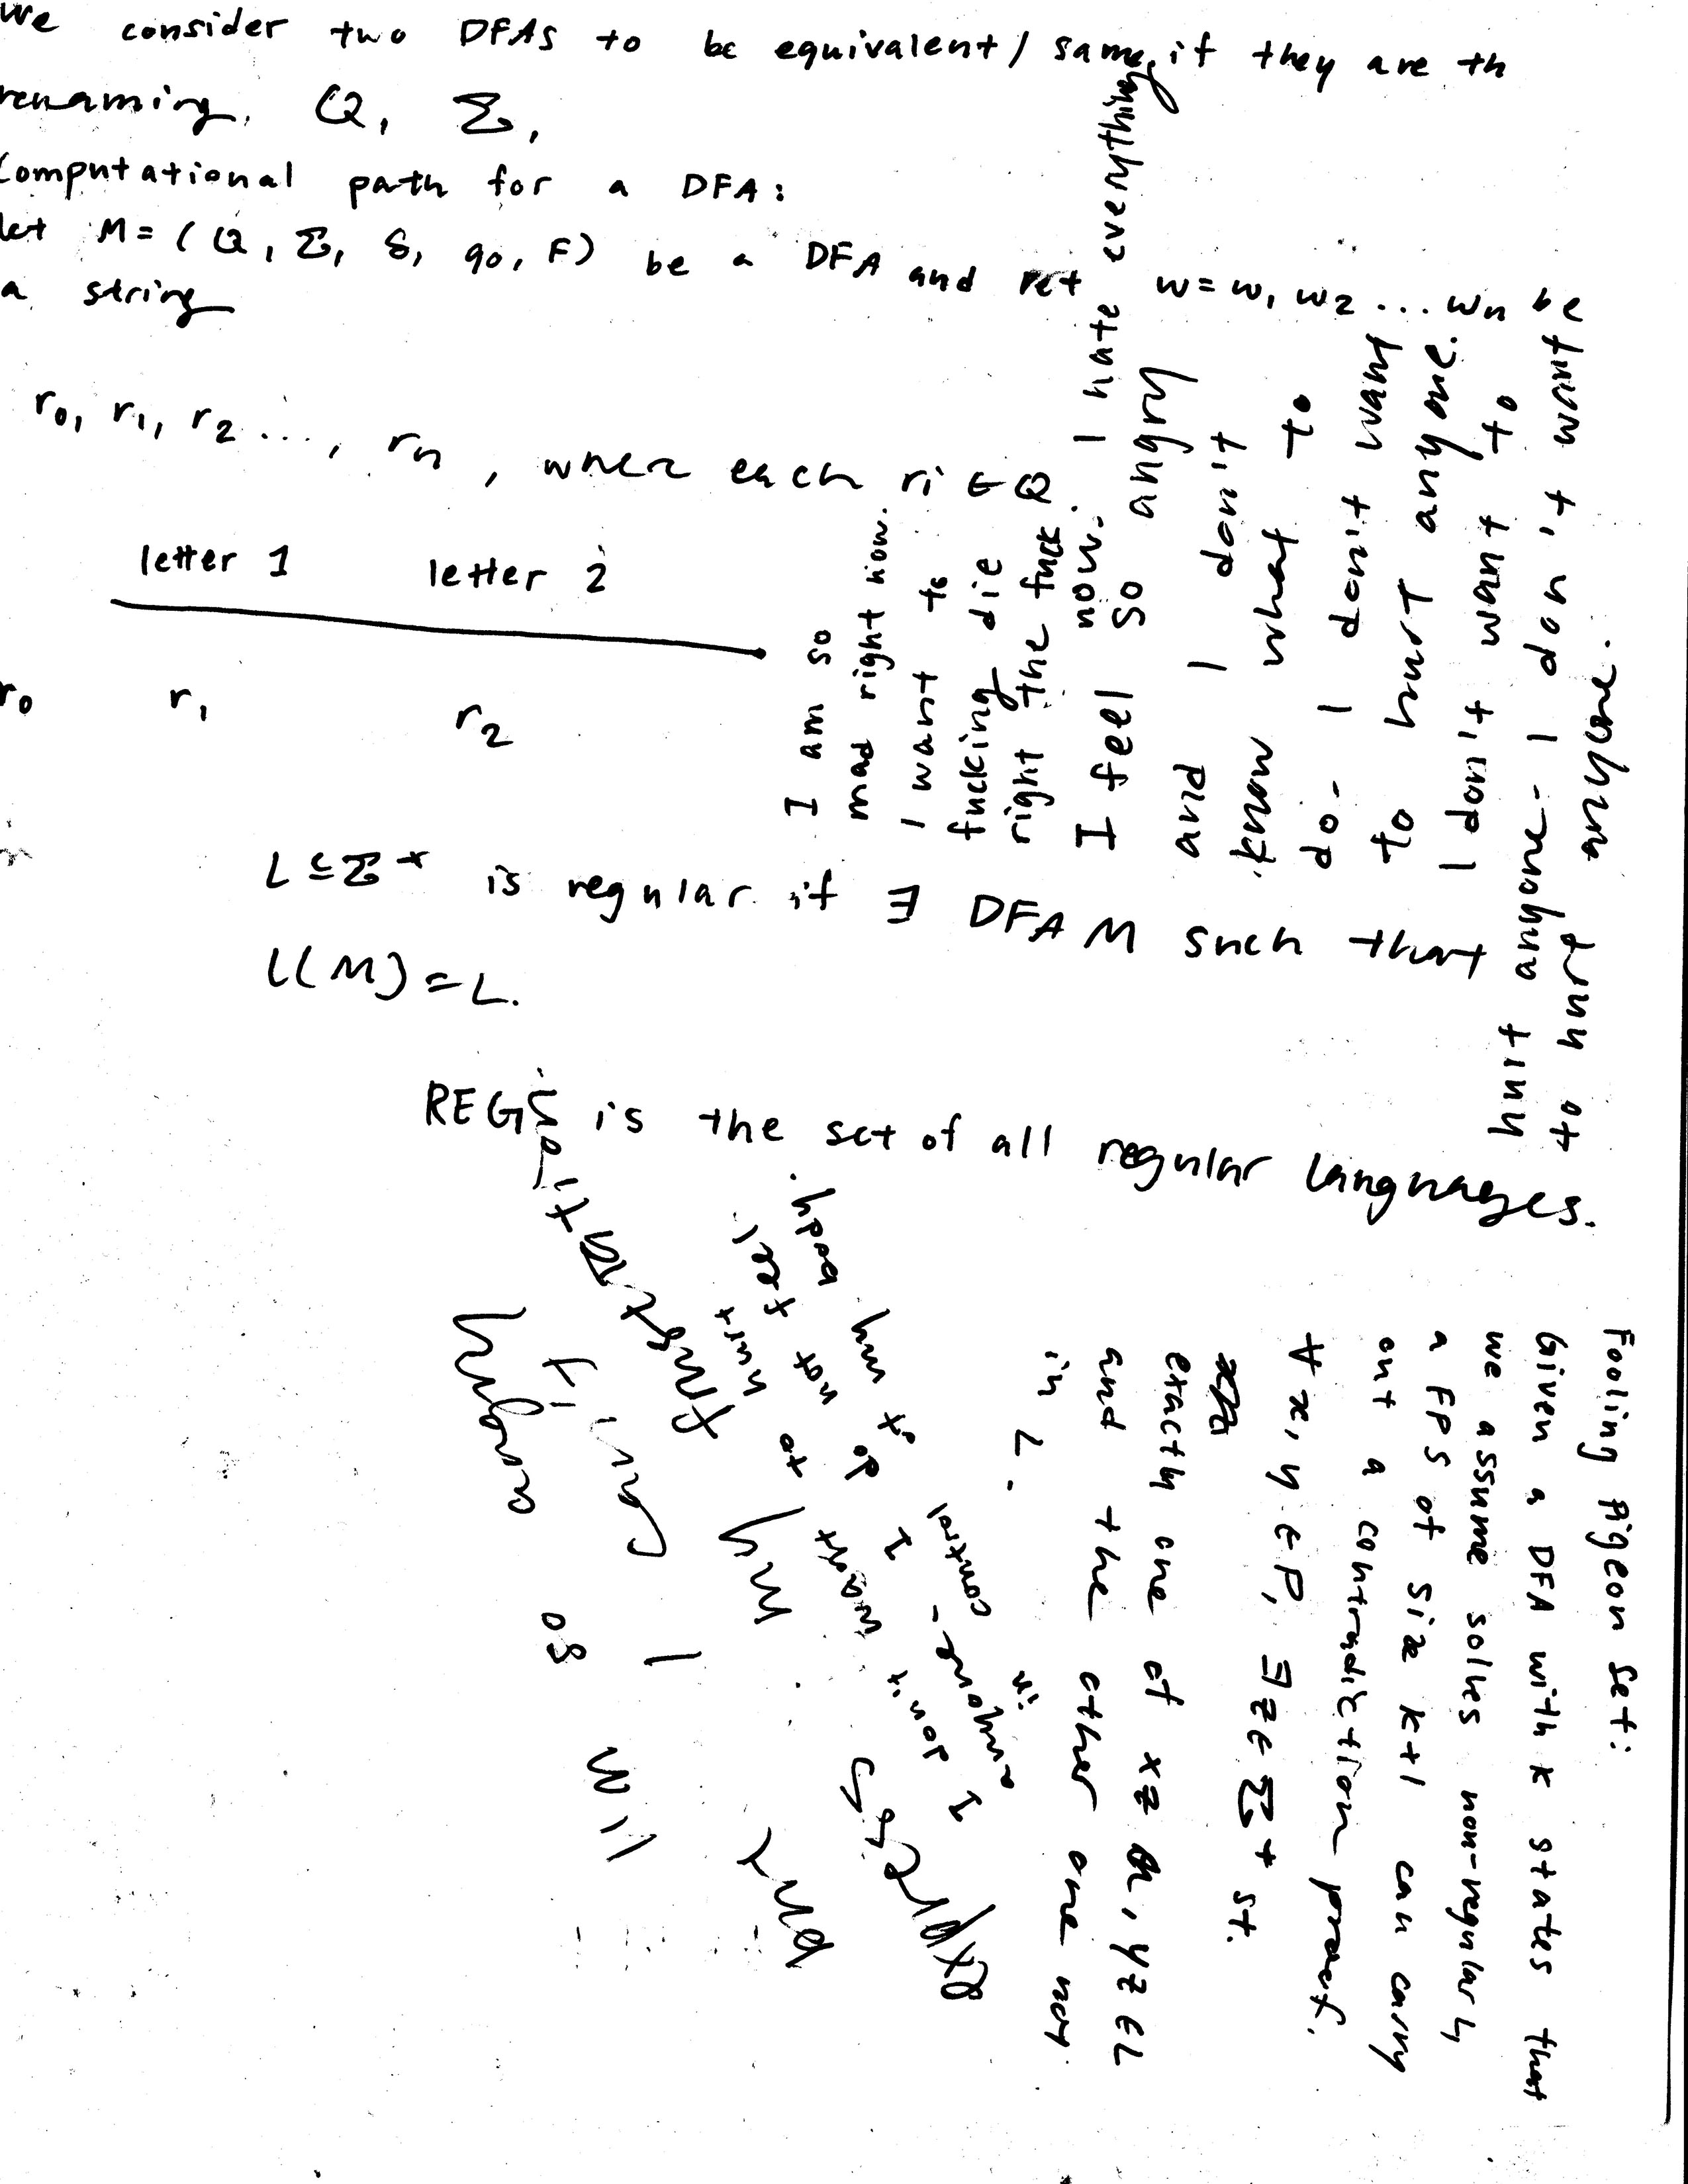 We consider two DFAs to be equivalent/same, if they are th
renaming. Q, Σ,
Computational path for a DFA:
let M = (Q, Σ, δ, q0, F) be a DFA and let w = w1 w2 ... wn be
a string
r0, r1, r2 ..., rn, where each ri ∈ Q.
letter 1 letter 2
r0 r1 r2
L ⊆ Σ* is regular if ∃ DFA M such that
L(M) = L.
REGS is the set of all regular languages.
I am so
mad right now.
I want to
fucking die
right the fuck
now. I hate everything
I feel so angry
and I don't
know what to
do - I don't want
to hurt anyone.
I don't want to
hurt anyone - I don't want
to hurt anyone.
Fooling Pigeon Set:
Given a DFA with k states that
we assume solves non-regular L
a FPS of size k+1 can carry
out a contradiction proof.
∀ x, y ∈ P, ∃ z ∈ Σ* st.
exactly one of xz, yz ∈ L
and the other one not
in L.
I do not feel
in control of my body.
anymore -
I don't want
to hurt
myself
but I
will
explode
so